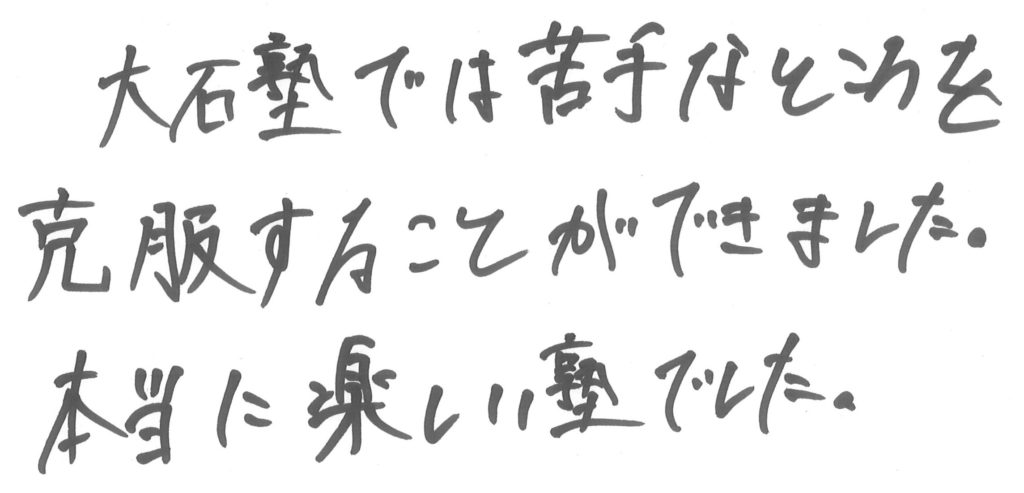 大石塾では苦手なところを
克服することができました。
本当に楽しい塾でした。